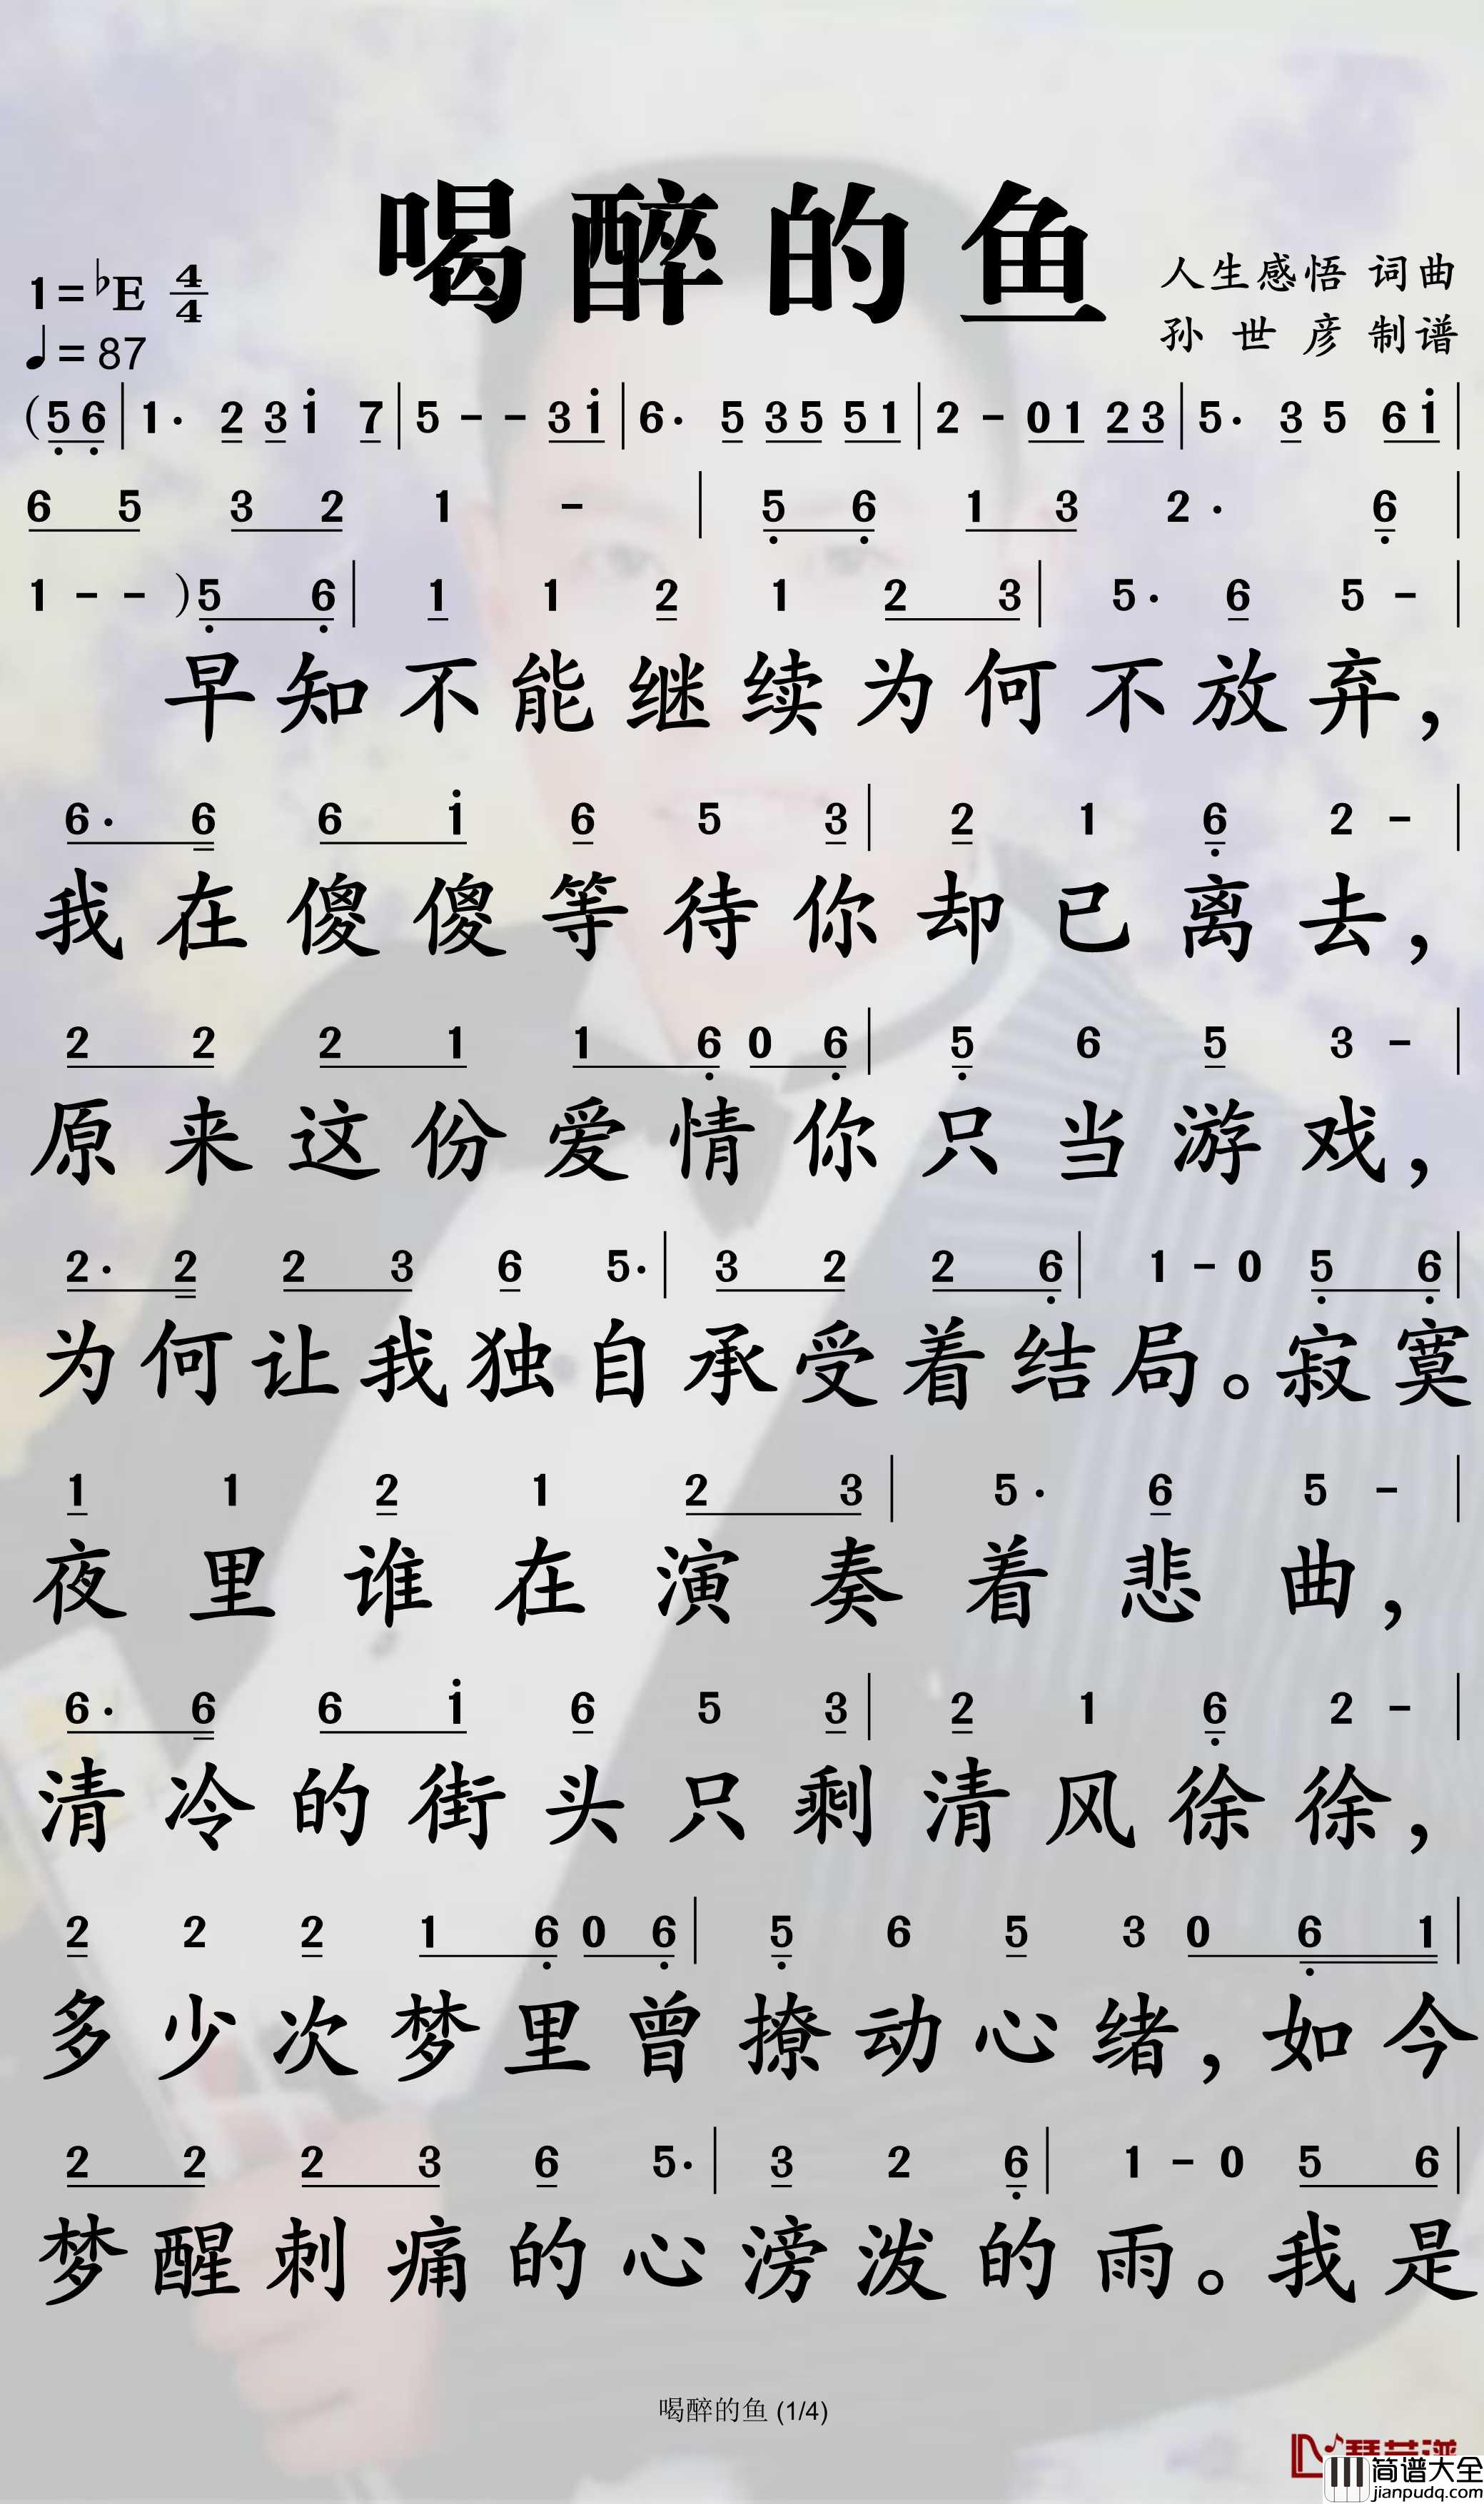 喝醉的鱼
1=♭E 4/4
人生感悟 词曲
♩=87
孙世彦 制谱
(5̣ 6̣ | 1· 2 3 i 7 | 5 - - 3 i | 6· 5 3 5 5 1 | 2 - 0 1 2 3 | 5· 3 5 6 i |
6 5 3 2 1 - | 5̣ 6̣ 1 3 2· 6̣ |
1 - - ) 5̣ 6̣ | 1 1 2 1 2 3 | 5· 6 5 - |
早知不能继续为何不放弃，
6· 6 6 i 6 5 3 | 2 1 6̣ 2 - |
我在傻傻等待你却已离去，
2 2 2 1 1 6̣ 0 6̣ | 5̣ 6 5 3 - |
原来这份爱情你只当游戏，
2· 2 2 3 6 5· | 3 2 2 6̣ | 1 - 0 5̣ 6̣ |
为何让我独自承受着结局。寂寞
1 1 2 1 2 3 | 5· 6 5 - |
夜里谁在演奏着悲曲，
6· 6 6 i 6 5 3 | 2 1 6̣ 2 - |
清冷的街头只剩清风徐徐，
2 2 2 1 6̣ 0 6̣ | 5̣ 6 5 3 0 6̣ 1 |
多少次梦里曾撩动心绪，如今
2 2 2 3 6 5· | 3 2 6̣ | 1 - 0 5 6 |
梦醒刺痛的心滂泼的雨。我是
喝醉的鱼 (1/4)
简谱大全
jianpudq.com